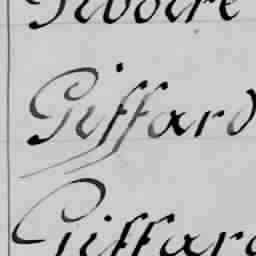 Giffard
Giffard